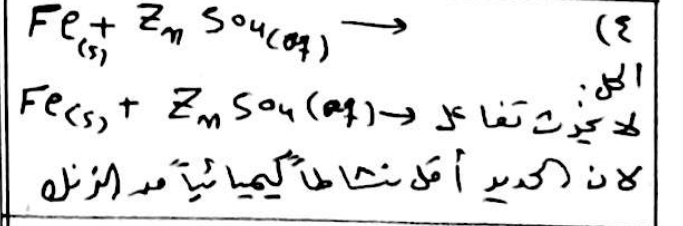 ٤) Fe(s) + Zn SO4(aq) →
الحل:
Fe(s) + Zn SO4(aq) → لا يحدث تفاعل
لان الحديد أقل نشاطاً كيميائياً من الزنك